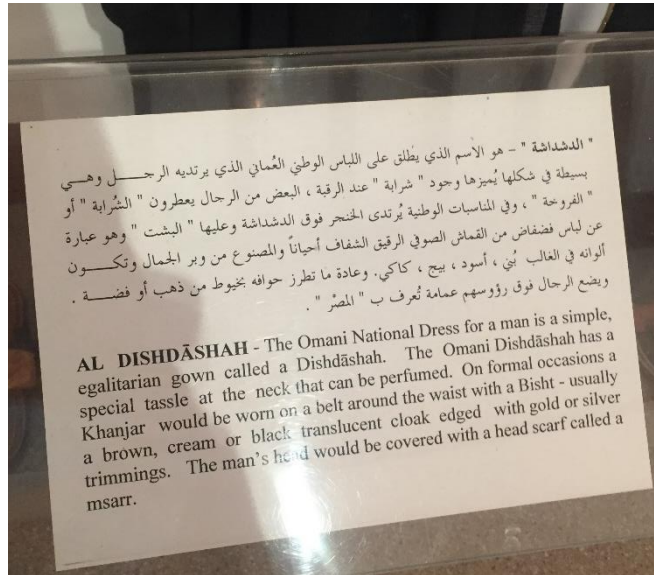 " الدشداشة " – هو الأسم الذي يُطلق على اللباس الوطني العُماني الذي يرتديه الرجـــــل وهـــي
بسيطة في شكلها يُميزها وجود " شرابة " عند الرقبة ، البعض من الرجال يعطرون " الشُرابة " أو
" الفروخة " ، وفي المناسبات الوطنية يُرتدى الخنجر فوق الدشداشة وعليها " البشت " وهو عبارة
عن لباس فضفاض من القماش الصوفي الرقيق الشفاف أحياناً والمصنوع من وبر الجمال وتكـــــون
ألوانه في الغالب بُني ، أسود ، بيج ، كاكي. وعادة ما تطرز حوافه بخيوط من ذهب أو فضـــــة .
ويضع الرجال فوق رؤوسهم عمامة تُعرف ب " المصْر " .
AL DISHDĀSHAH - The Omani National Dress for a man is a simple,
egalitarian gown called a Dishdāshah. The Omani Dishdāshah has a
special tassle at the neck that can be perfumed. On formal occasions a
Khanjar would be worn on a belt around the waist with a Bisht - usually
a brown, cream or black translucent cloak edged with gold or silver
trimmings. The man's head would be covered with a head scarf called a
msarr.